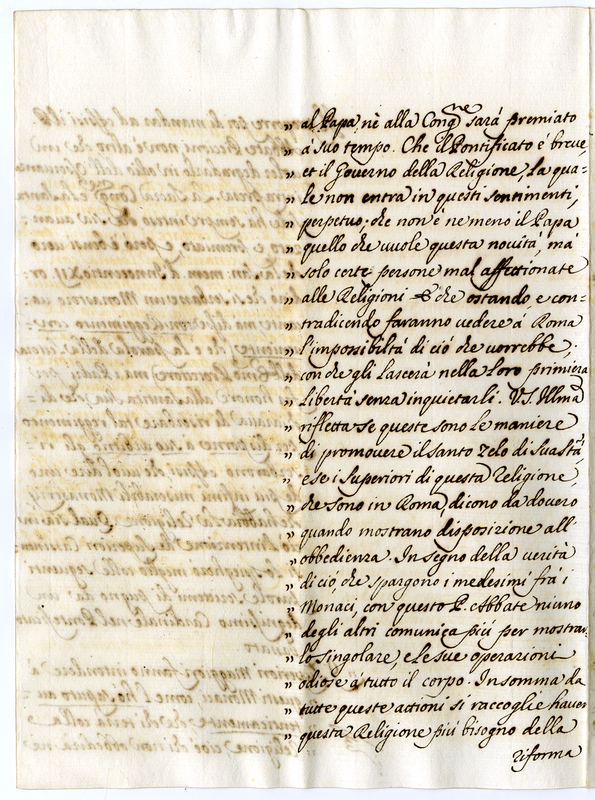 „ al Papa, nè alla Cong.ne sarà premiato
„ à suo tempo. Che il Pontificato è breve,
„ et il Governo della Religione, la qua=
„ le non entra in questi sentimenti,
„ perpetuo, che non è nemeno il Papa
„ quello che vuole questa novità, mà
„ solo certe persone mal affettionate
„ alla Religioni che ostando e con=
„ tradicendo faranno vedere à Roma
„ l'impossibiltà di ciò che vorrebbe,
„ con che gli lascerà nella loro primiera
„ libertà senza inquietarli. V.S. Illma
„ rifletta se queste sono le maniere
„ di promovere il santo zelo di Sua Stà,
„ e se i Superiori di questa Religione,
„ che sono in Roma, dicono da dovero
„ quando mostrano disposizione all'
„ obbedienza. In segno della verità
„ di ciò, che spargono i medesimi frà i
„ Monaci, con questo P. Abbate niuno
„ degli altri comunica più per mostrar=
„ lo singolare, e le sue operazioni
„ odiose à tutto il corpo. In somma da
„ tutte queste actioni si raccoglie haver
„ questa Religione più bisogno della
riforma